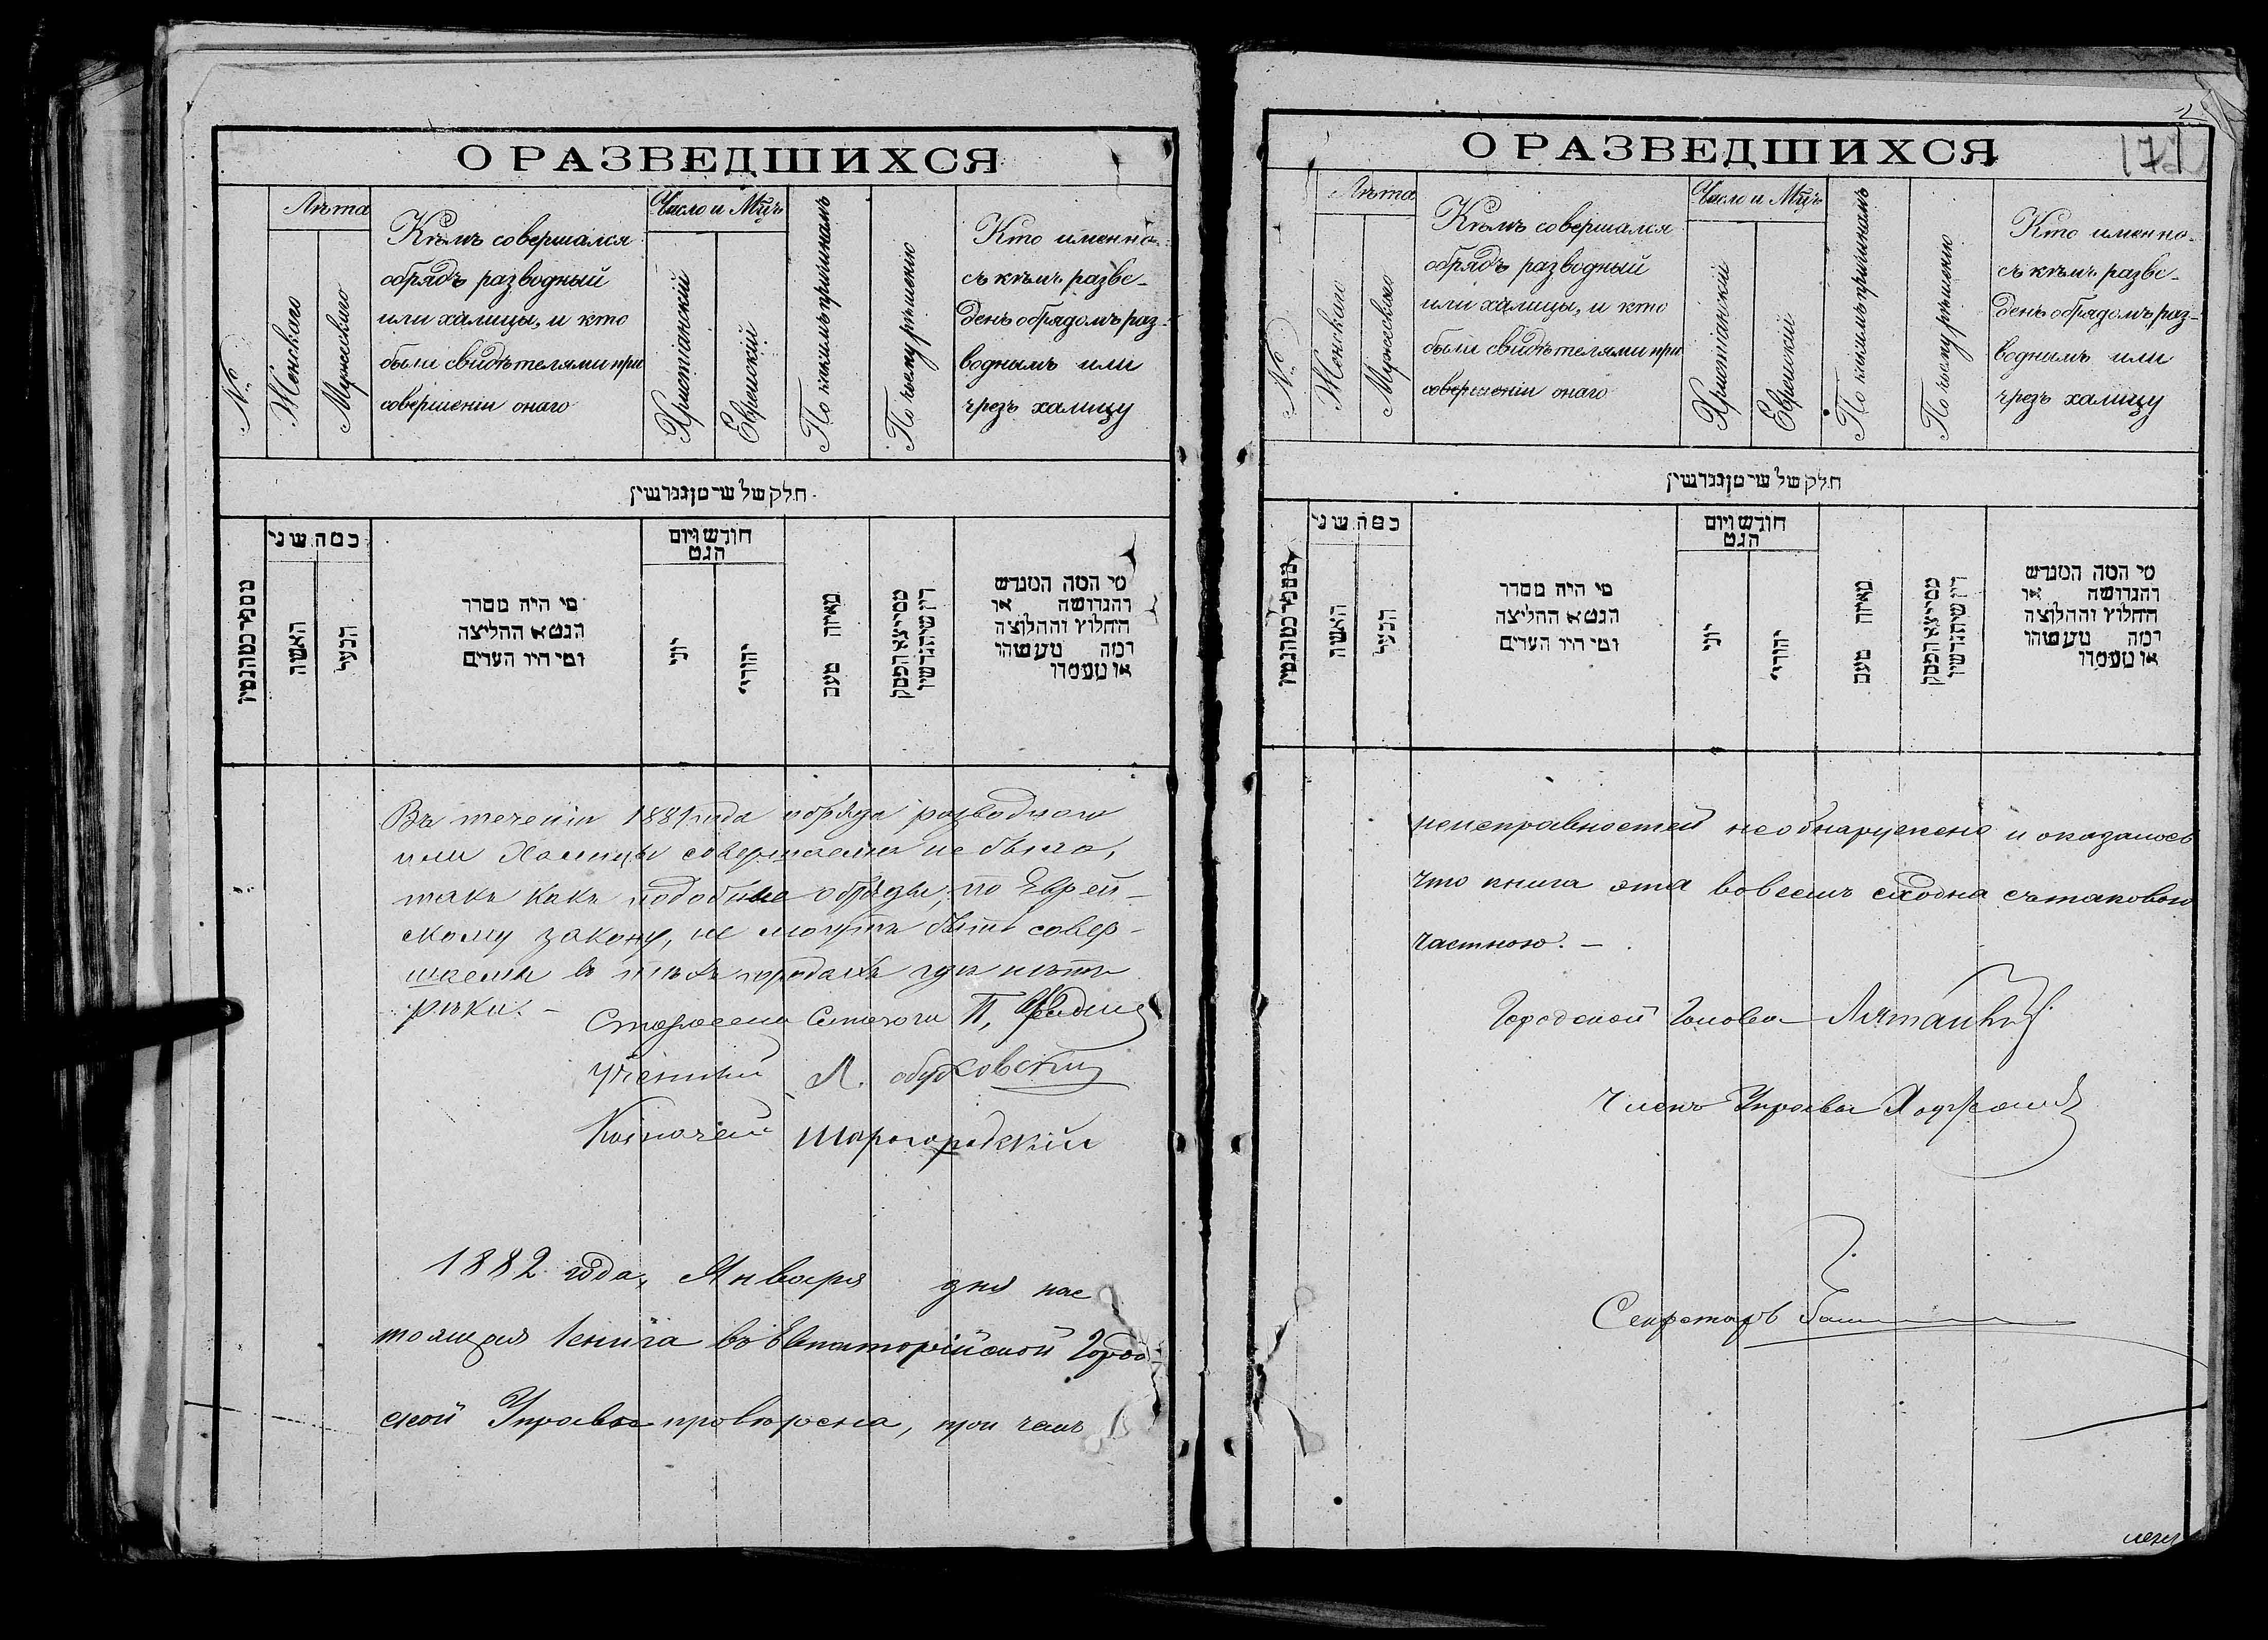 О РАЗВЕДШИХСЯ
№
Лѣта
Женскаго
Мужескаго
Кѣмъ совершался
обрядъ разводный
или халицы, и кто
были свидѣтелями при
совершеніи онаго
Число и Мцъ
Христіанскій
Еврейскій
По какимъ причинамъ
По чьему рѣшенію
Кто именно
съ кѣмъ разве-
денъ обрядомъ раз-
воднымъ или
чрезъ халицу
חלק של
כמה שני
האשה
הבעל
מי היה מסדר
הגט או החליצה
ומי היו העדים
חודש ויום
הגט
יוני
יהודי
מאיזה טעם
ממי יצא הפסק
דין שיתגרשו
מי המה המגרש
והגרושה או
החלוץ והחלוצה
ומה מעשהו
או מעמדו
Въ теченіи 1881 года обряда разводнаго
или Халицы совершаемо не было,
такъ какъ подобные обряды, по Еврей-
скому закону, не могутъ быть совер-
шаемы въ тѣхъ городахъ гдѣ нѣтъ
рѣки. -
Староста Синагоги П.
Ученый Л.
Казначей Шарогородскій
1882 года, Января дня нас
тоящая книга въ Евпаторійской Город
ской Управѣ провѣрена, при чемъ
О РАЗВЕДШИХСЯ
171
№
Лѣта
Женскаго
Мужескаго
Кѣмъ совершался
обрядъ разводный
или халицы, и кто
были свидѣтелями при
совершеніи онаго
Число и Мцъ
Христіанскій
Еврейскій
По какимъ причинамъ
По чьему рѣшенію
Кто именно
съ кѣмъ разве-
денъ обрядомъ раз-
воднымъ или
чрезъ халицу
חלק של
כמה שני
האשה
הבעל
מי היה מסדר
הגט או החליצה
ומי היו העדים
חודש ויום
הגט
יוני
יהודי
מאיזה טעם
ממי יצא הפסק
דין שיתגרשו
מי המה המגרש
והגרושה או
החלוץ והחלוצה
ומה מעשהו
או מעמדו
неисправностей необнаружено и оказалось
что книга эта вовсемъ сходна съ таковою
частною. -
Городской Голова
Членъ Управы
Секретарь